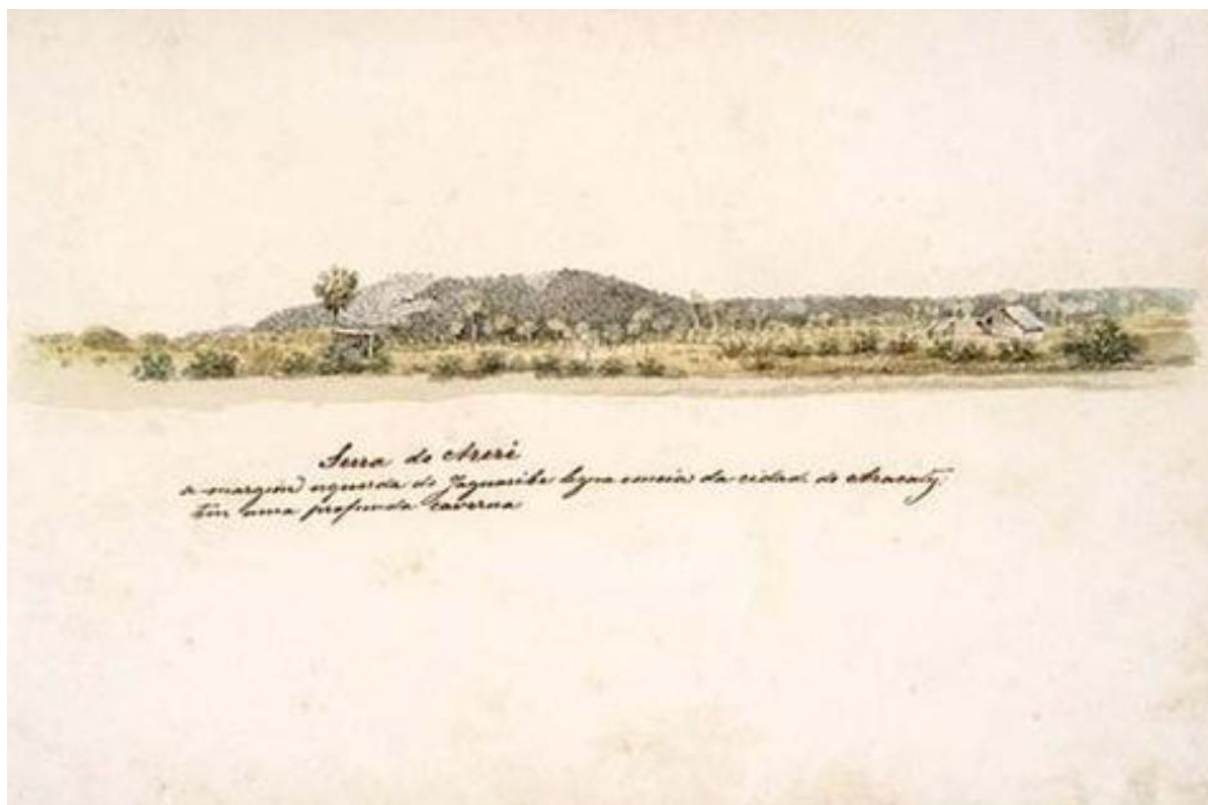 Serra do Areré
a margem esquerda do Jaguaribe legua e meia da cidad. do Aracaty
tem uma profunda caverna